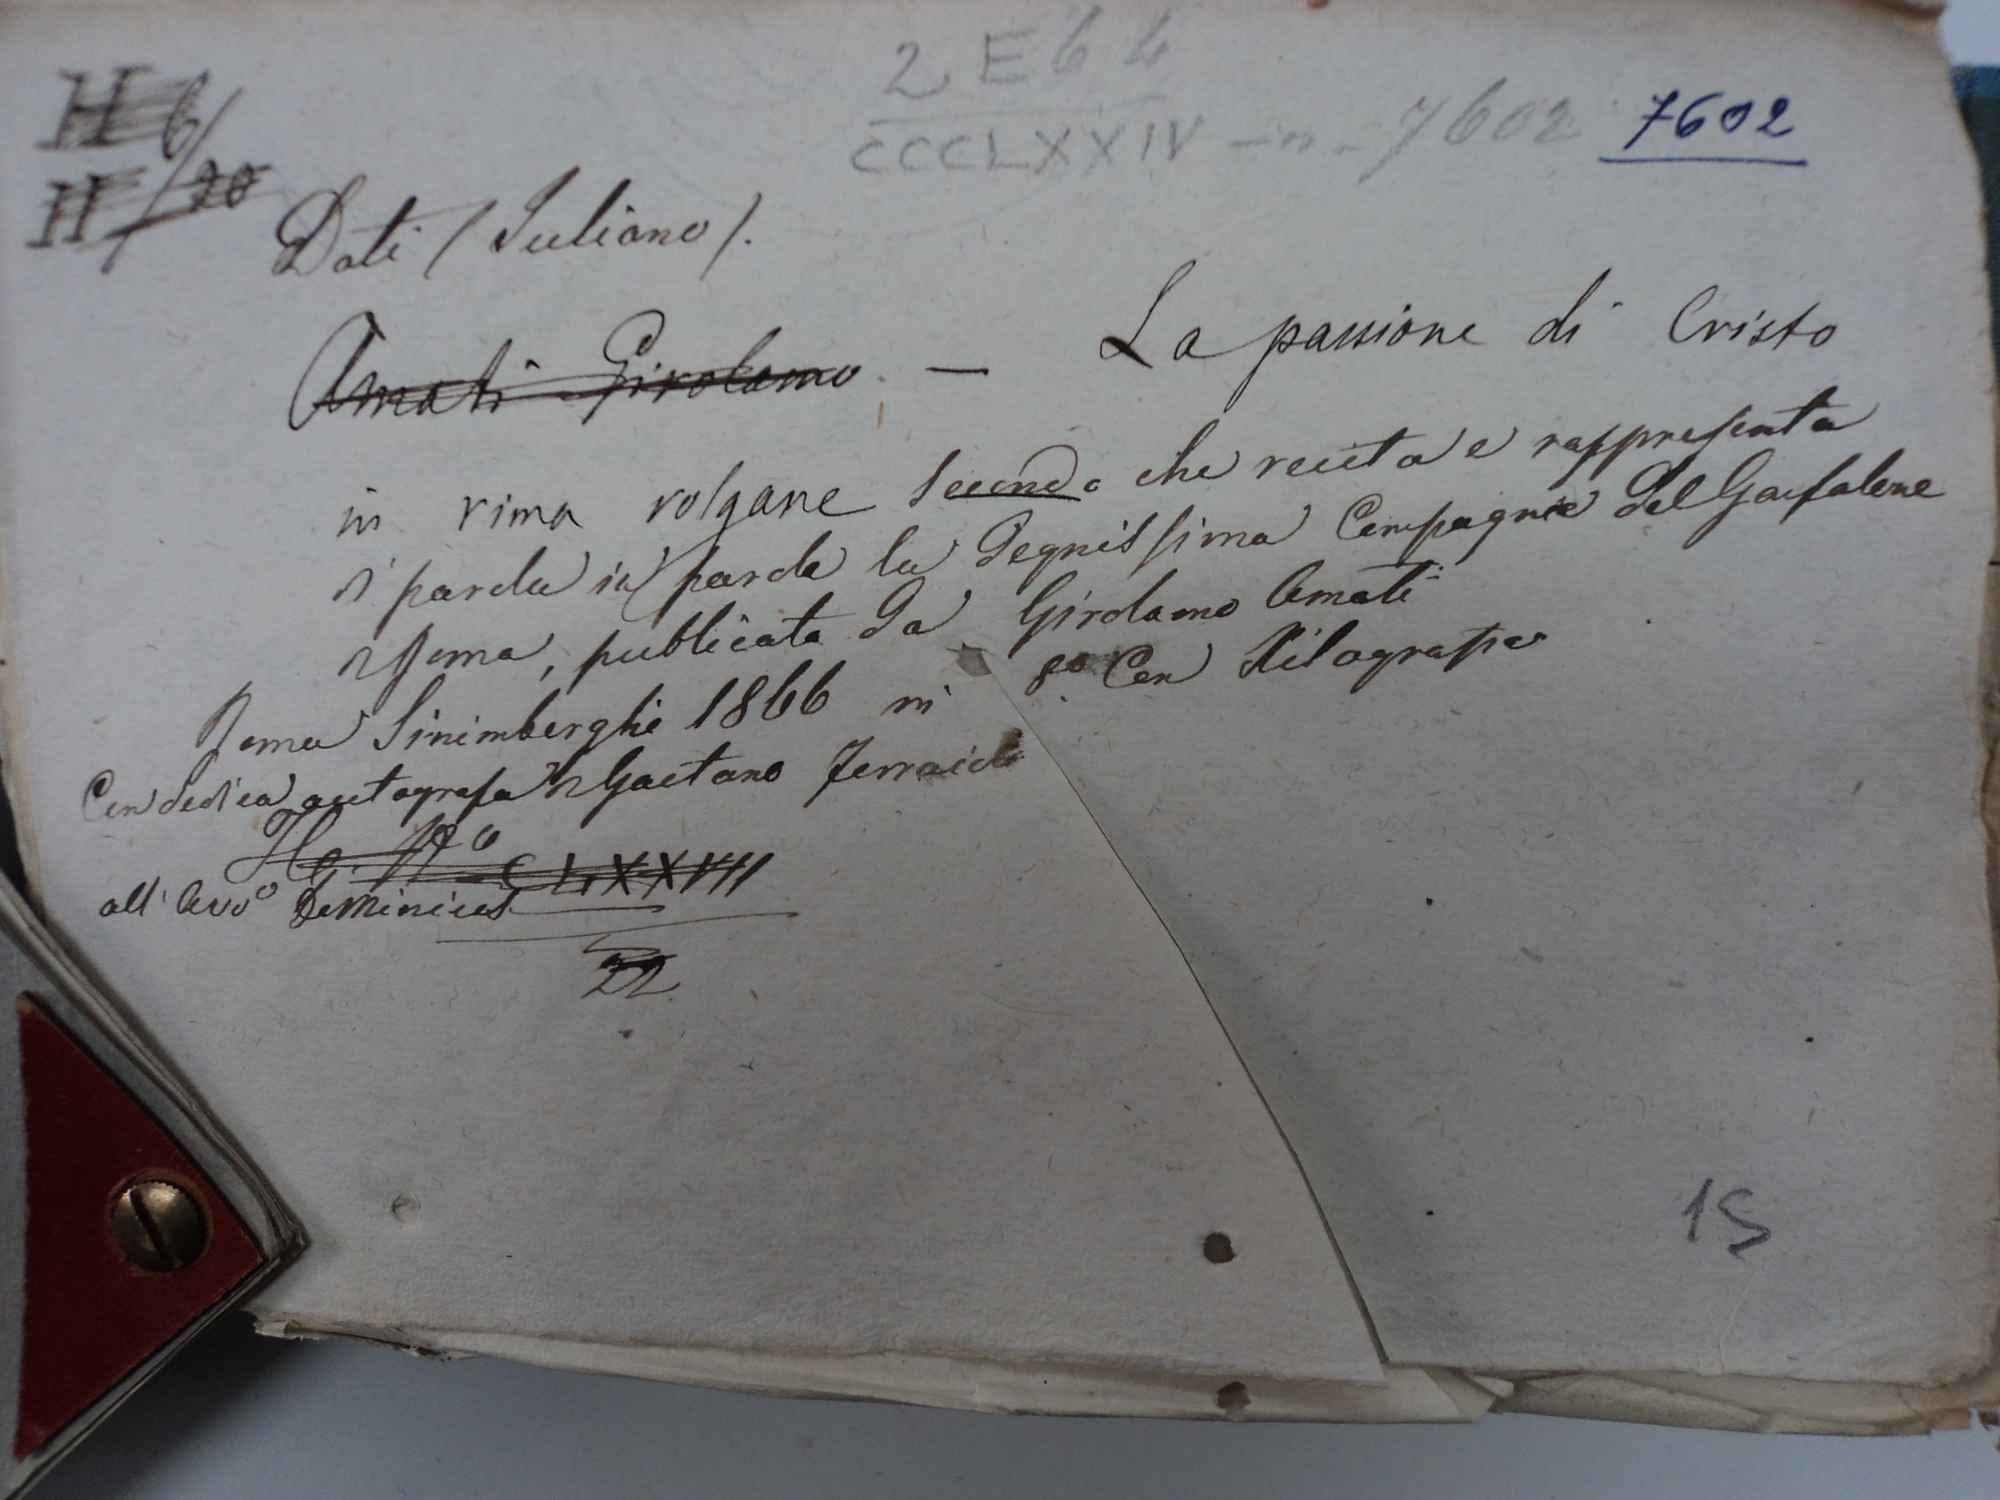 2 E 6 4
CCCLXXIV - n. 7602 7602
H 6/
H /20
Dati (Giuliano).
Amati Girolamo. — La passione di Cristo
in rima volgare secondo che recita e rappresenta
di parola in parola la degnissima Compagnia del Gonfalone
di Roma, publicata da Girolamo Amati
Roma Sinimberghi 1866 in 8º Con Xilografie
Con dedica autografa di Gaetano
CLXXVIII
all' Avvº Deminicis
22
15